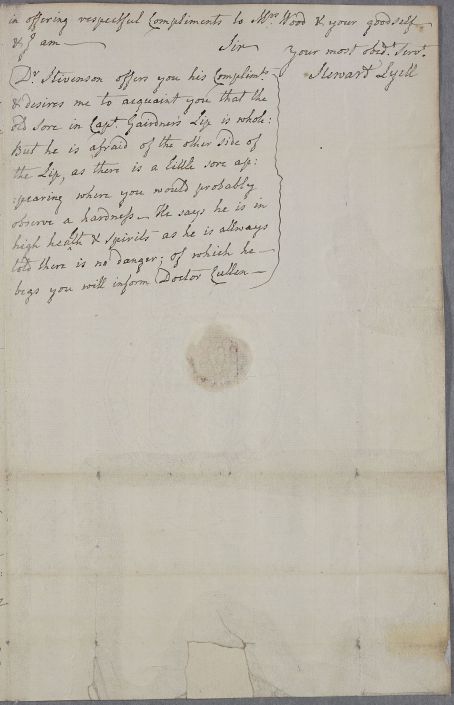 in offering respectful Compliments to Mrs Wood & your goodself
& I am — Sir your most obedt. Servt.
Steward Lyell
Dr. Stevenson offers you his Complimts
& desires me to acquaint you that the
old sore in Capt. Gairdner's Lip is whole:
But he is afraid of the other side of
the Lip, as there is a little sore ap:
:pearing where you would probably
observe a hardness — He says he is in
high health & Spirits as he is allways
told there is no danger; of which he —
begs you will inform Doctor Cullen —